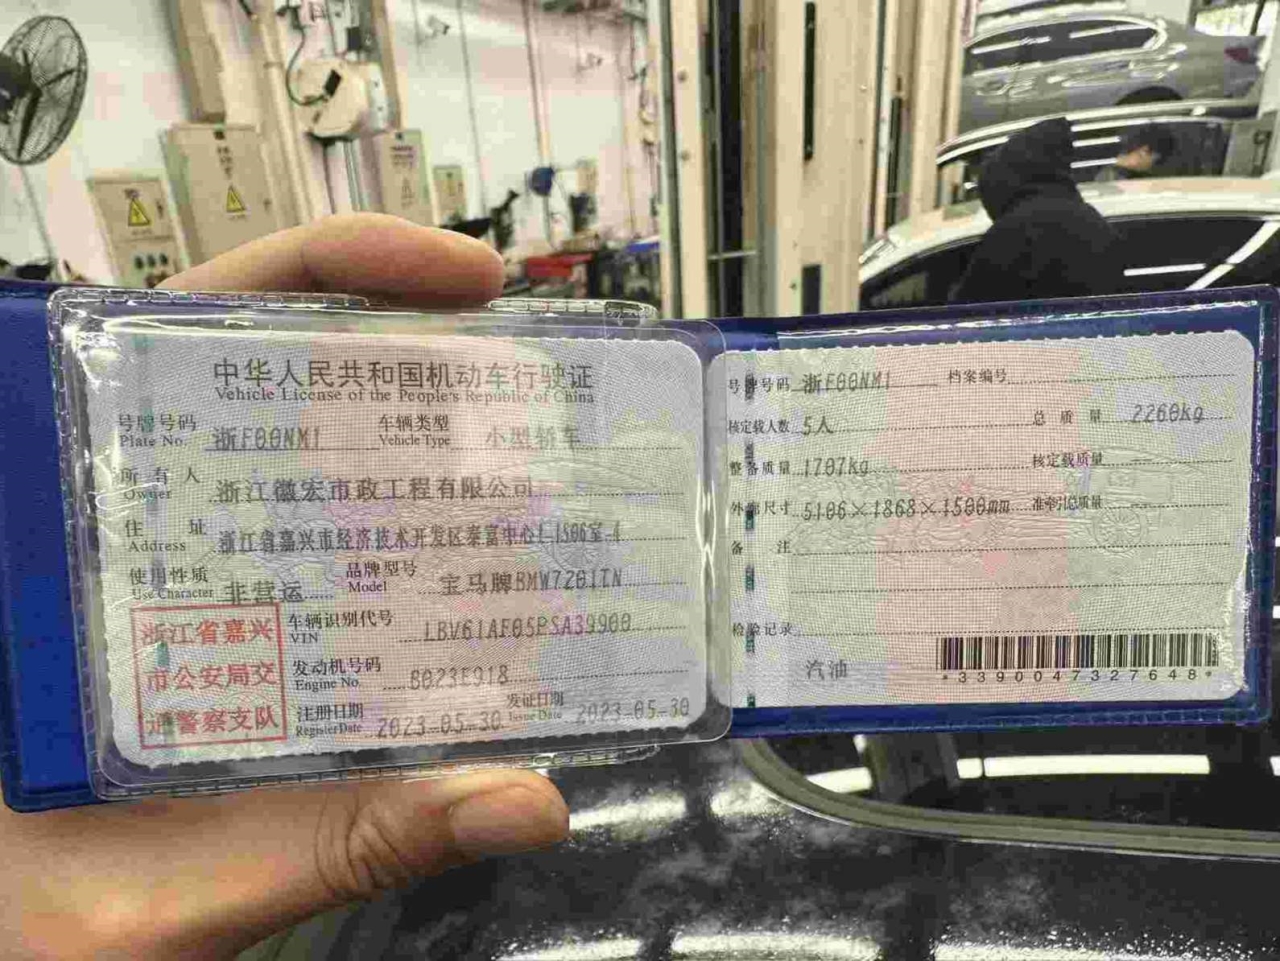 中华人民共和国机动车行驶证
Vehicle License of the People's Republic of China
号牌号码 浙F00NM1 车辆类型 小型轿车
Plate No. Vehicle Type
所有人 浙江徽宏市政工程有限公司
Owner
住址 浙江省嘉兴市经济技术开发区泰富中心1-1506室-4
Address
使用性质 非营运 品牌型号 宝马牌BMW7201TN
Use Character Model
浙江省嘉兴
市公安局交
通警察支队
车辆识别代号 LBV61AF05PSA39900
VIN
发动机号码 B023E918
Engine No.
注册日期 2023-05-30 发证日期 2023-05-30
Register Date Issue Date
号牌号码 浙F00NM1 档案编号
核定载人数 5人 总质量 2260kg
整备质量 1707kg 核定载质量 --
外廓尺寸 5106×1868×1500mm 准牵引总质量 --
备注
检验记录
汽油
*3390047327648*